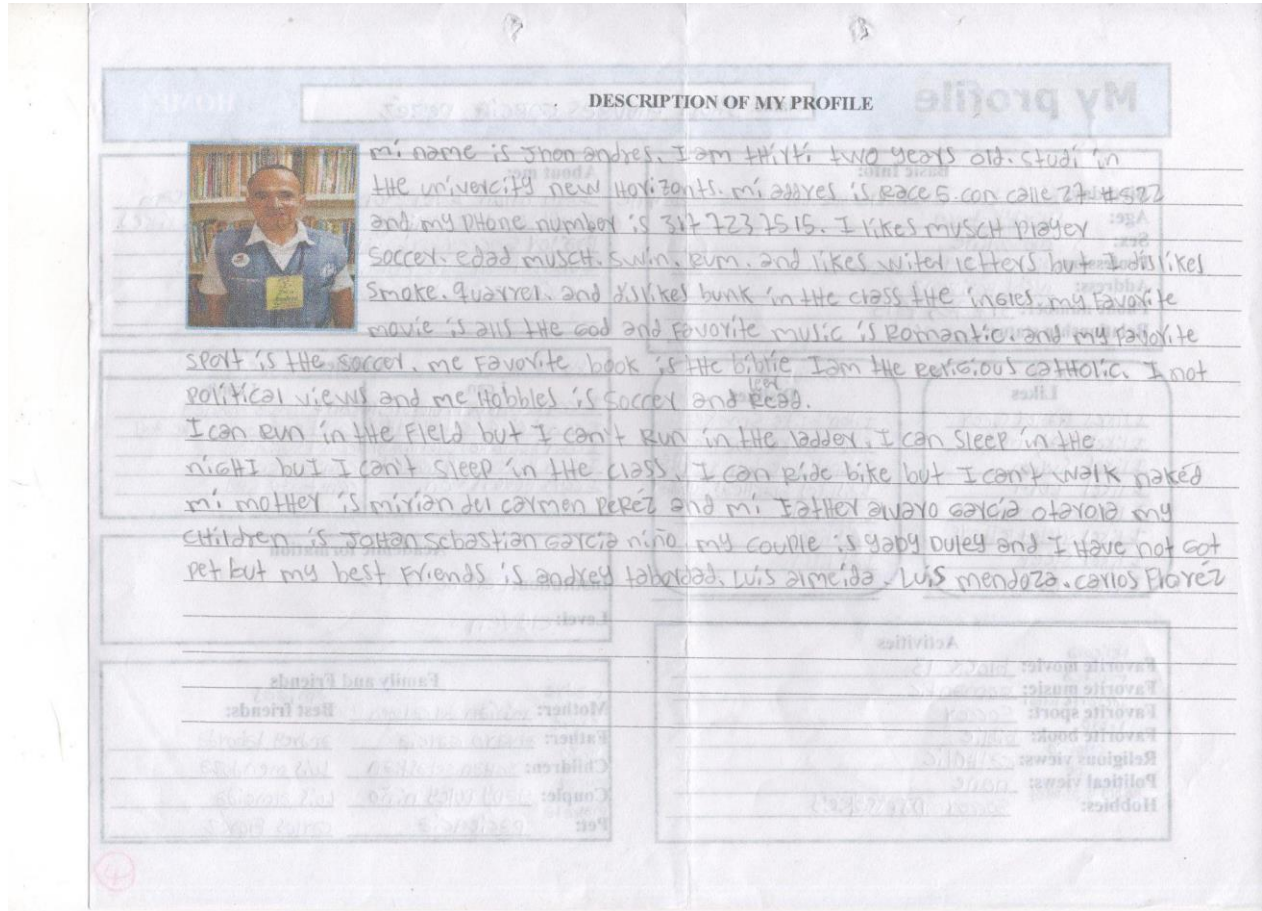 DESCRIPTION OF MY PROFILE
mi name is Jhon andres. I am tHirti two years old. studi in
tHe univercity new Horizonts. mi addres is Race 5. con calle 27 # 5822
and my pHone number is 317 723 7515. I likes muscH player
soccer. edad muscH. swin. Rum. and likes witer letters but I dislikes
smoke. quarrel. and dislikes bunk in tHe class tHe ingles. my favorite
movie is alls tHe God and Favorite music is Romantic. and my favorite
sport is tHe soccer. me Favorite book is tHe biblie I am tHe Religious catHolic. I not
political views and me Hobbles is soccer and leer Read.
I can Run in tHe Field but I can't Run in tHe ladder. I can sleep in tHe
nigHt but I can't sleep in tHe class. I can Ride bike but I can't walk naked
mi motHer is mirian del carmen Peréz and mi FatHer alvaro Garcia otarola my
cHildren is JoHan Sebastian Garcia niño my couple is yady Duley and I Have not Got
pet but my best Friends is andrey tabordad. Luis almeida. Luis mendoza. carlos Floréz